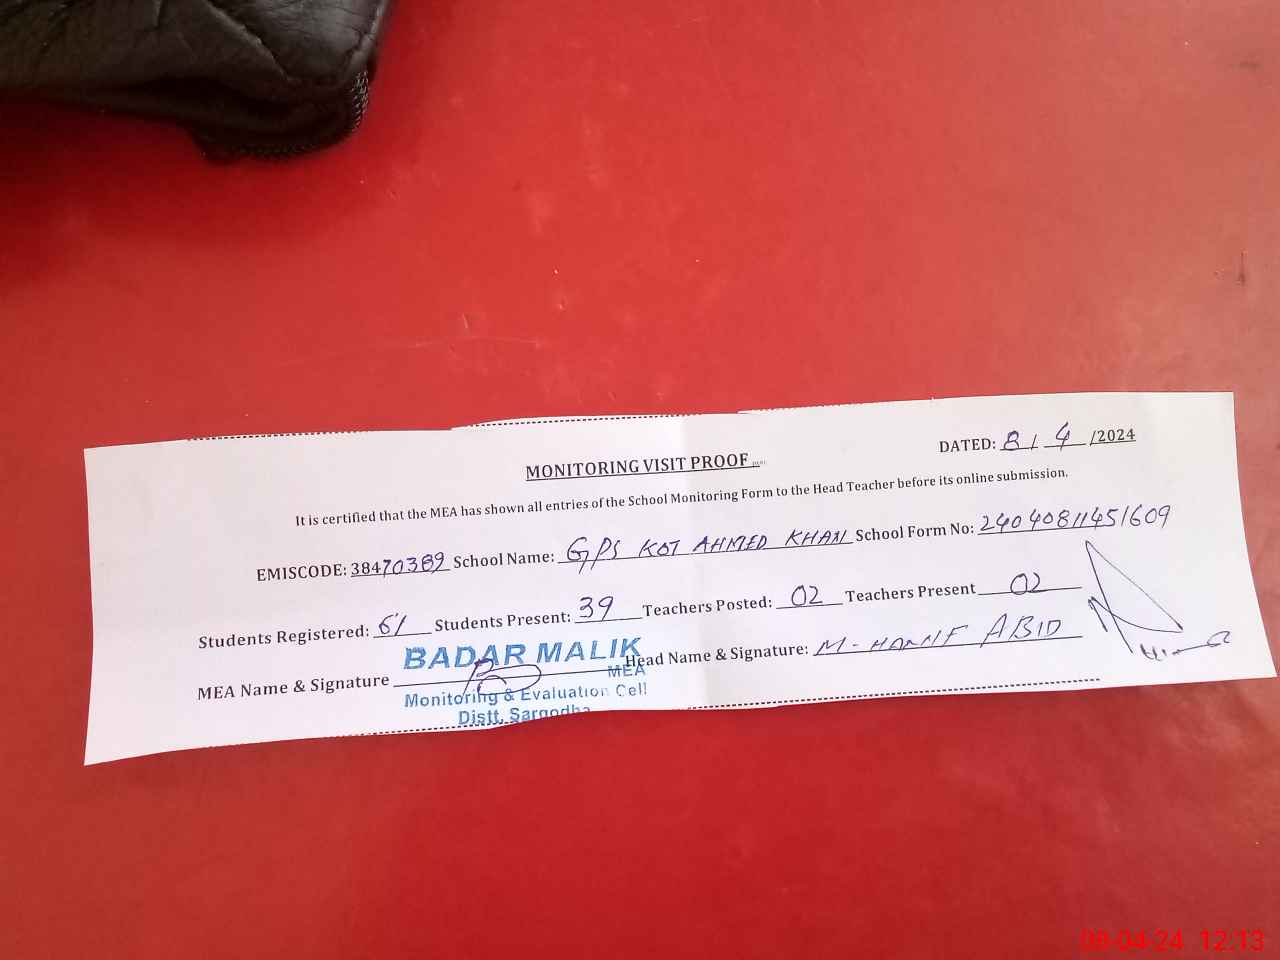 DATED: 8 / 4 /2024
MONITORING VISIT PROOF
It is certified that the MEA has shown all entries of the School Monitoring Form to the Head Teacher before its online submission.
EMISCODE: 38470389 School Name: GPS KOT AHMED KHAN School Form No: 24040811451609
Students Registered: 61 Students Present: 39 Teachers Posted: 02 Teachers Present 02
MEA Name & Signature Head Name & Signature: M-HANIF ABID
BADAR MALIK
MEA
Monitoring & Evaluation Cell
Distt. Sargodha
08-04-24 12:13